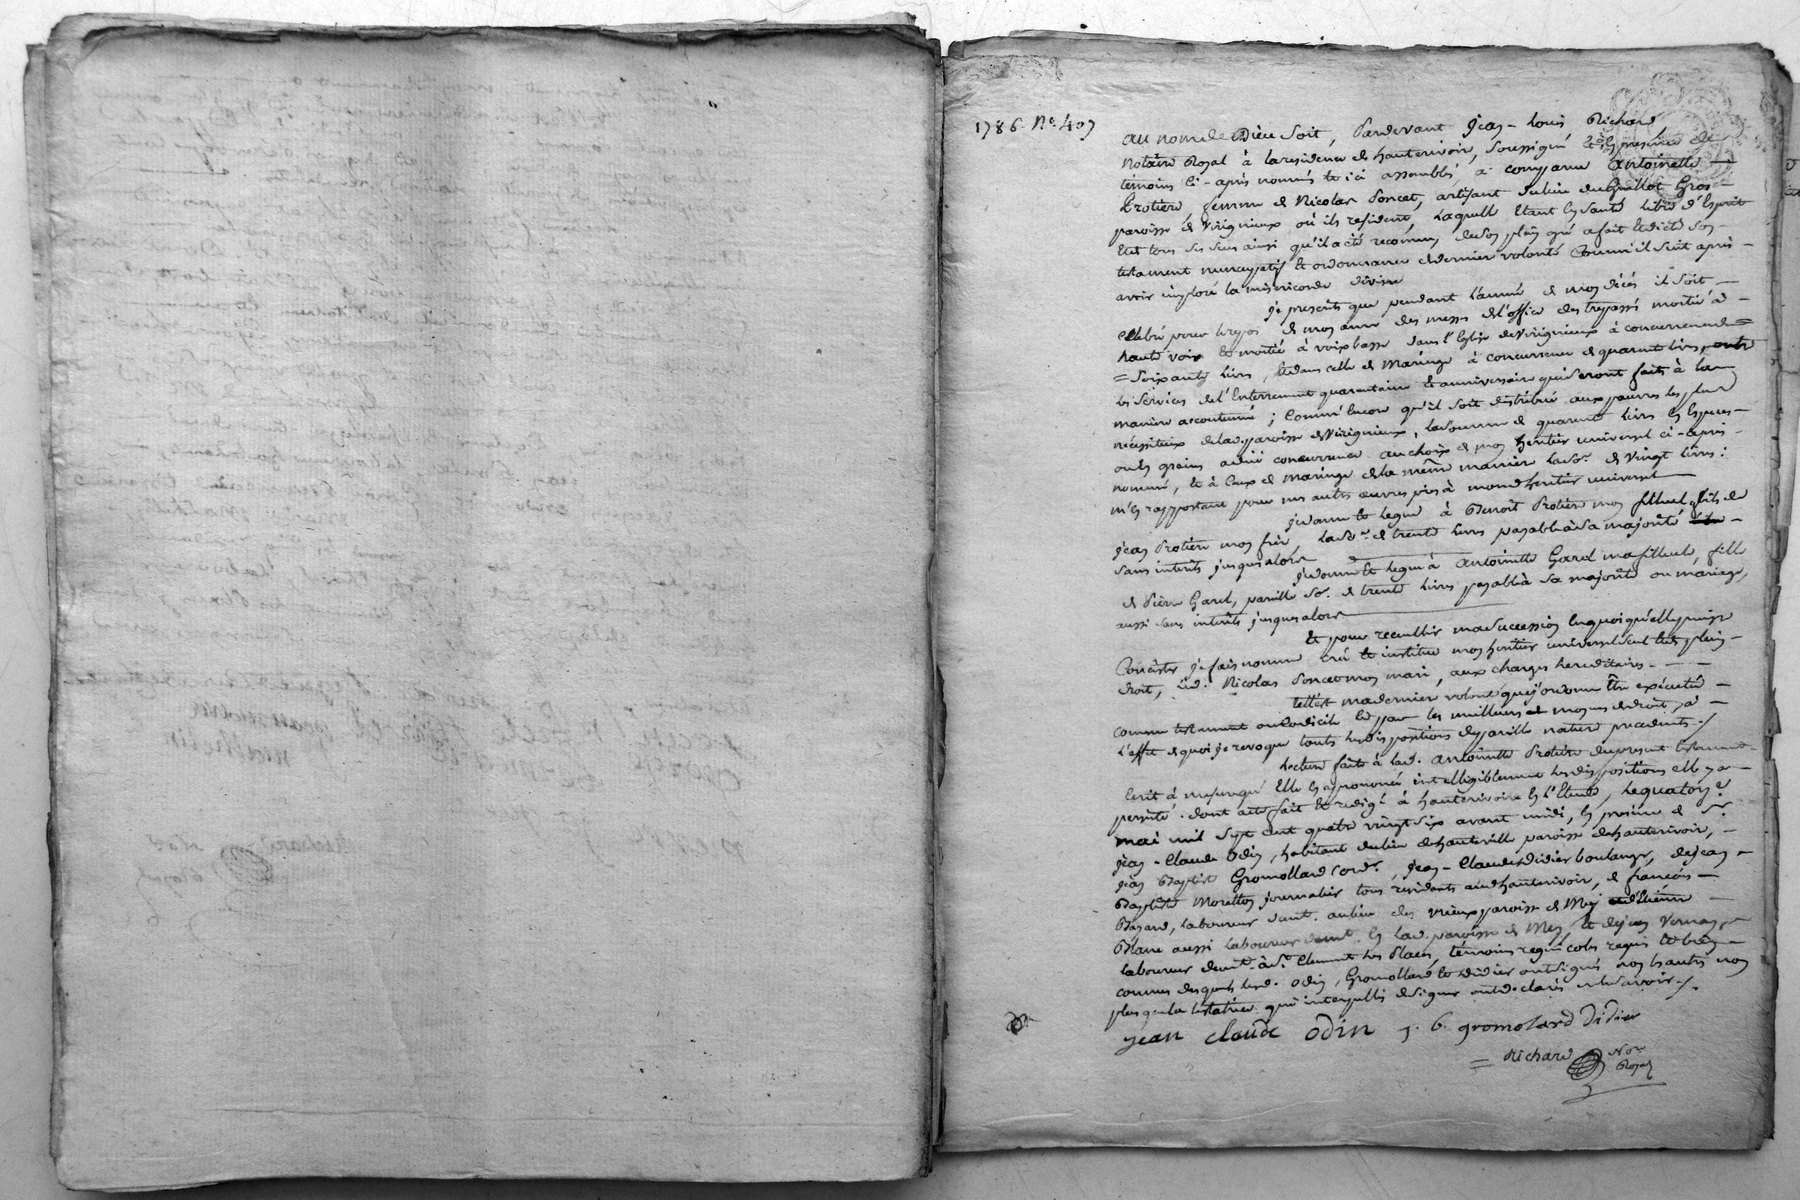 1786. N° 407
au nom de Dieu soit, Pardevant Jean-Louis Richard
Notaire Royal à la residence de hauterivoir, soussigné et en presence de
témoins ci-après nommés et ici assemblés, a comparu antoinette
Protiere femme de Nicolas Poncet, artisant du lieu du Guillot Gros
paroisse de virignieux où ils resident, laquelle étant en santé libre d'Esprit
Et tous ses sens ainsi qu'il a été reconnu, de son plein gré a fait et dicté son
testament nuncupatif et ordonnance de dernier volonté Comm'il suit après
avoir imploré la misericorde divine
je prescrits que pendant l'année de mon décès il soit
célébré pour le repos de mon ame des messes de l'office des trepassés moitié à
haute voix et moitié à voix basse dans l'Eglise de virignieux à concurrence de
= soixante livres, et dans celle de Maringe à concurrence de quarante livres, outre
les services de l'Enterrement quarantaine et anniversaire qui seront faits à la
manière accoutumé; Comm'encor qu'il soit distribué aux pauvres les plus
nécessiteux de lad. paroisse de Virignieux, la somme de quarante livres en Especes
ou en grains à due concurrence au choix de mon heritier universel ci-après
nommé, et à Ceux de Maringe de la même manier la So.e de vingt livres;
m'en rapportant pour mes autres œuvres pies à mond. heritier universel
je donne et legue à Benoît Protiere mon filleul, fils de
jean Protiere mon frère la So.e de trente livres payable à sa majorité
sans interêts jusqu'alors
je donne et legue à antoinette Garel ma filleule, fille
de Pierre Garel, pareille So. de trente livres payable à sa majorité ou mariage,
aussi sans interêts jusqu'alors
Et pour recueillir ma succession en quoi qu'elle puisse
Consister je fais nomme crée et institue mon heritier universel seul et de plein
droit, led. Nicolas Poncet mon mari, aux charges hereditaires
telle est ma dernier volonté que j'ordonne être exécutée
comme testament ou codicile et par les meilleurs moyens de droit, à
l'effet de quoi je revoque toutes les dispositions de pareille nature precedents./
Lecture faite à lad. antoinette Protiere du present testament
Ecrit à mesure qu'Elle en a prononcé intelligiblement les dispositions elle y a
persisté. dont acte fait et redigé à hauterivoire en l'Etude, le quatorze
mai mil sept cent quatre vingt six avant midi, en presence de Sr.
jean-Claude Odin, habitant du lieu de hauteville paroisse de hauterivoir,
jean Baptiste Gromollard Cord.r, jean-Claude Didier boulanger, de jean
Baptiste Moretton journalier tous residants aud. hauterivoir, de françois
Bazard, laboureur demt. au lieu des vrieux paroisse de Mey
Blanc aussi laboureur demt. en lad. paroisse de Mey, et de jean Vernay
laboureur demt. à St. Clement les Places, témoins regnicoles requis et bien
connus desquels lesd. Odin, Gromollard et Didier ont signés non les autres non
plus que la testatrice qui interpellés de signer ont declarés ne le savoir./.
jean claude odin j. b. gromolard Didier
= Richard Nore
Royal